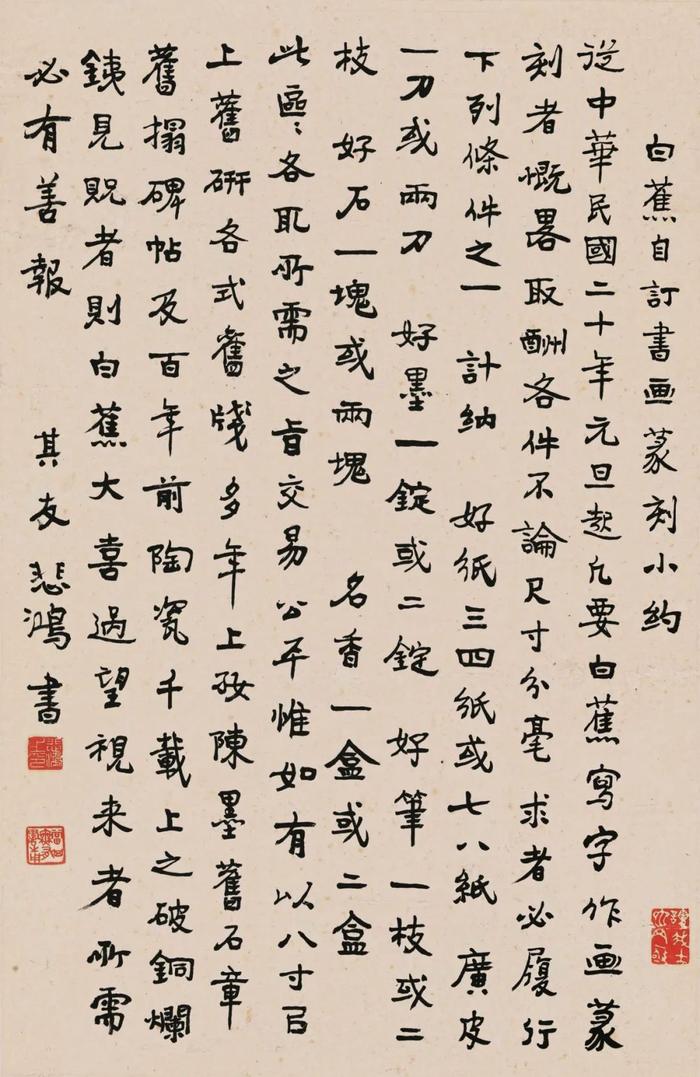 白蕉自訂書画篆刻小约
從中華民國二十年元旦起凡要白蕉寫字作画篆
刻者慨畧取酬各件不論尺寸分毫求者必履行
下列條件之一 計纳 好纸三四纸或七八紙 廣皮
一刀或兩刀 好墨一錠或二錠 好筆一枝或二
枝 好石一塊或兩塊 名香一盒或二盒
此區〻各取所需之旨交易公平惟如有以八寸㠯
上舊硏各式舊牋多年上好陳墨舊石章
舊搨碑帖及百年前陶瓷千載上之破銅爛
銕見貺者則白蕉大喜過望視来者所需
必有善報 其友悲鴻書